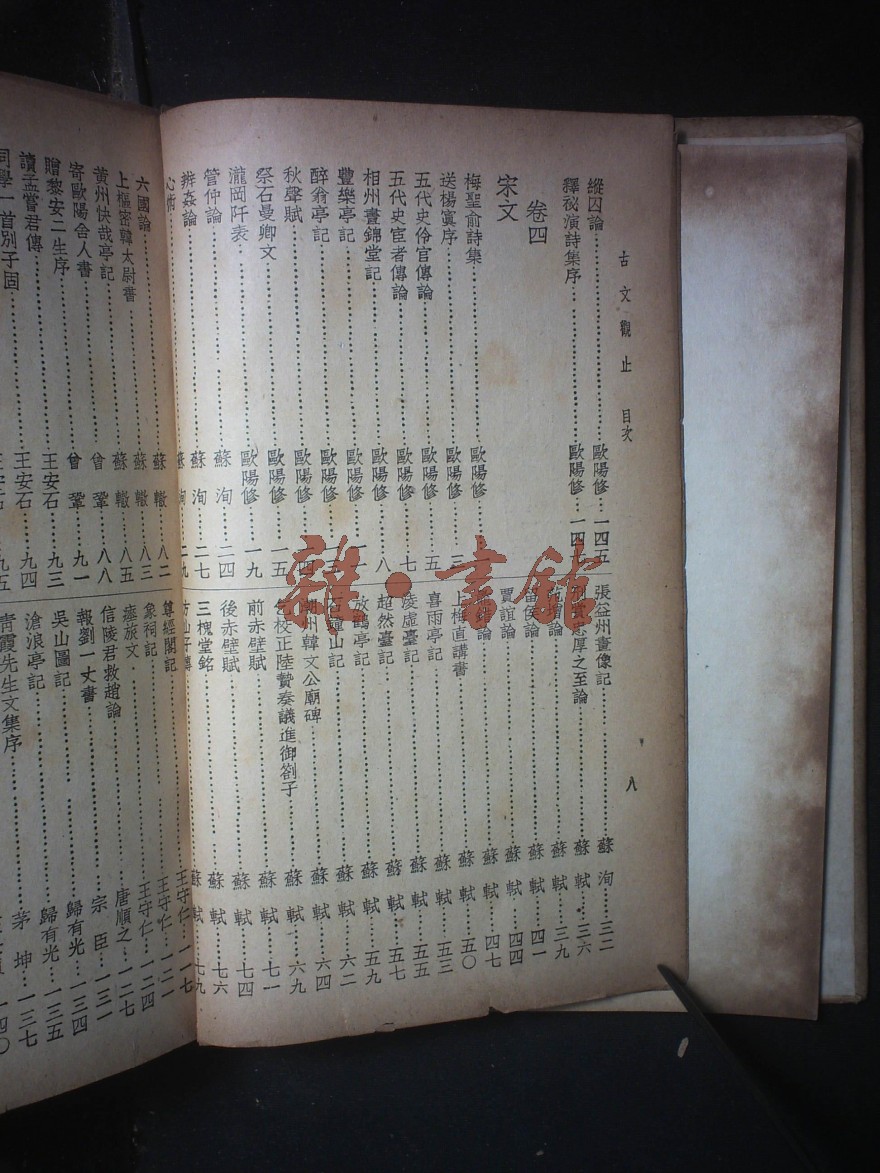 古文觀止 目次 八
縱囚論……歐陽修…一四五
釋祕演詩集序……歐陽修…一四七
卷四
宋文
梅聖俞詩集……歐陽修…
送楊寘序……歐陽修…三
五代史伶官傳論……歐陽修…五
五代史宦者傳論……歐陽修…七
相州晝錦堂記……歐陽修…八
豐樂亭記……歐陽修…
醉翁亭記……歐陽修…
秋聲賦……歐陽修…
祭石曼卿文……歐陽修…一五
瀧岡阡表……歐陽修…一九
管仲論……蘇洵…二四
辨姦論……蘇洵…二七
心術……蘇洵…二九
張益州畫像記……蘇洵…三二
刑賞忠厚之至論……蘇軾…三六
范增論……蘇軾…三九
留侯論……蘇軾…四一
賈誼論……蘇軾…四四
論……蘇軾…四七
上梅直講書……蘇軾…五〇
喜雨亭記……蘇軾…五三
凌虛臺記……蘇軾…五五
超然臺記……蘇軾…五七
放鶴亭記……蘇軾…五九
石鐘山記……蘇軾…六二
潮州韓文公廟碑……蘇軾…六四
乞校正陸贄奏議進御劄子……蘇軾…六九
前赤壁賦……蘇軾…七一
後赤壁賦……蘇軾…
三槐堂銘……蘇軾…七六
方山子傳……蘇軾…七九
六國論……蘇轍…八二
上樞密韓太尉書……蘇轍…八三
黃州快哉亭記……蘇轍…八五
寄歐陽舍人書……曾鞏…八八
贈黎安二生序……曾鞏…九一
讀孟嘗君傳……王安石…九三
同學一首別子固……王安石…九四
王安石…九五
尊經閣記……王守仁…一一七
象祠記……王守仁…一二一
瘞旅文……王守仁…一二四
信陵君救趙論……唐順之…一二七
報劉一丈書……宗臣…一三一
吳山圖記……歸有光…一三四
滄浪亭記……歸有光…一三五
青霞先生文集序……茅坤…一三七
一四〇
雜·書館